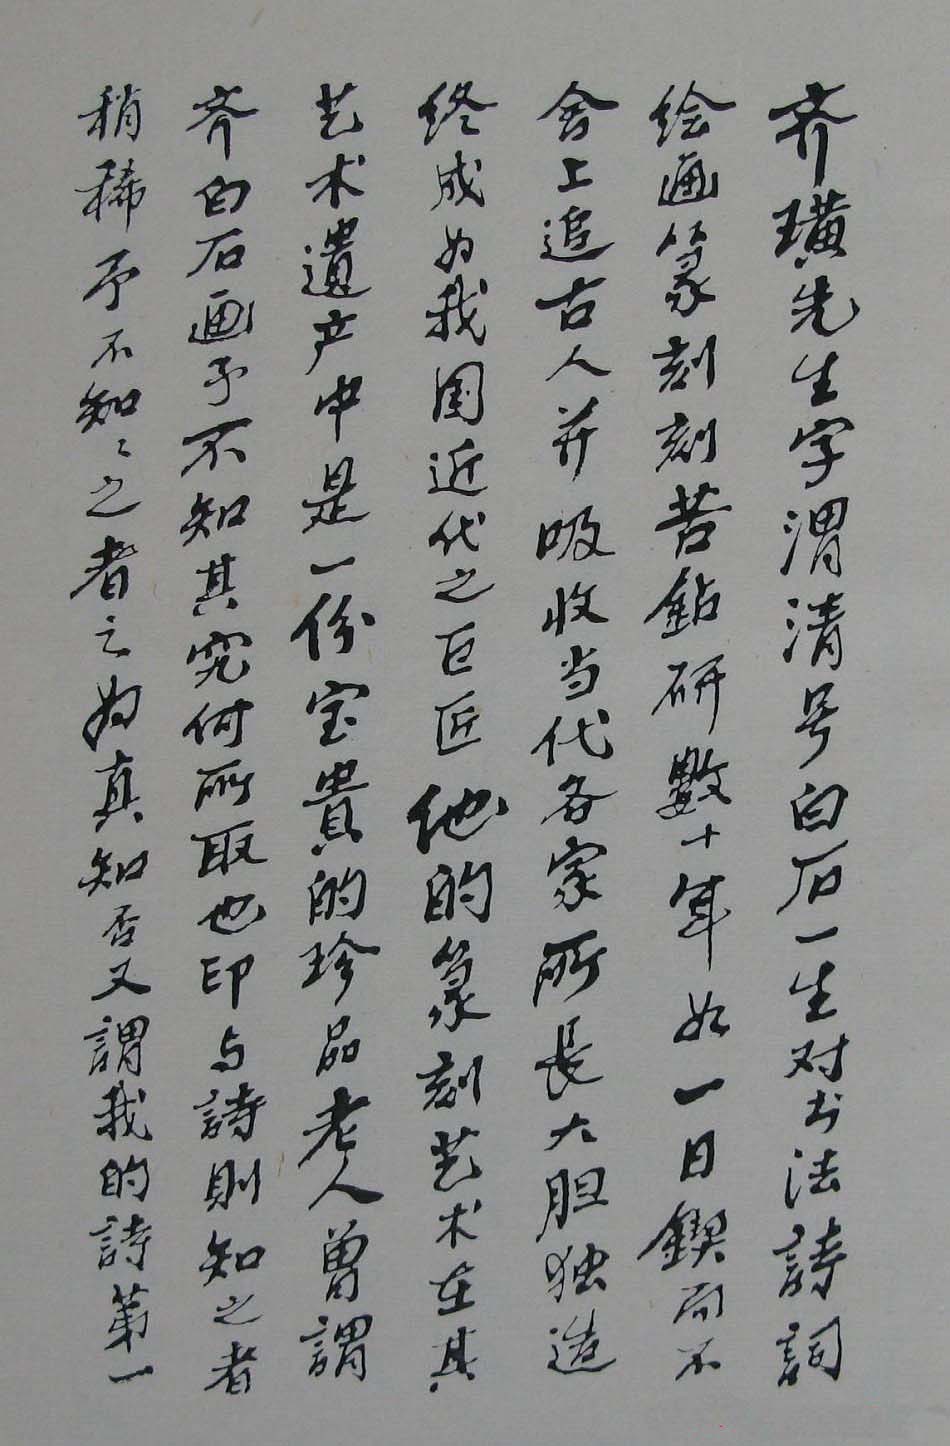 齐璜先生字渭清号白石一生对书法詩詞
绘画篆刻刻苦鉆研數十年如一日鍥而不
舍上追古人并吸收当代各家所長大胆独造
终成为我国近代之巨匠他的篆刻艺术在其
艺术遺产中是一份宝貴的珍品老人曾謂
齐白石画予不知其究何所取也印与詩則知之者
稍稀予不知〻之者之为真知否又謂我的詩第一